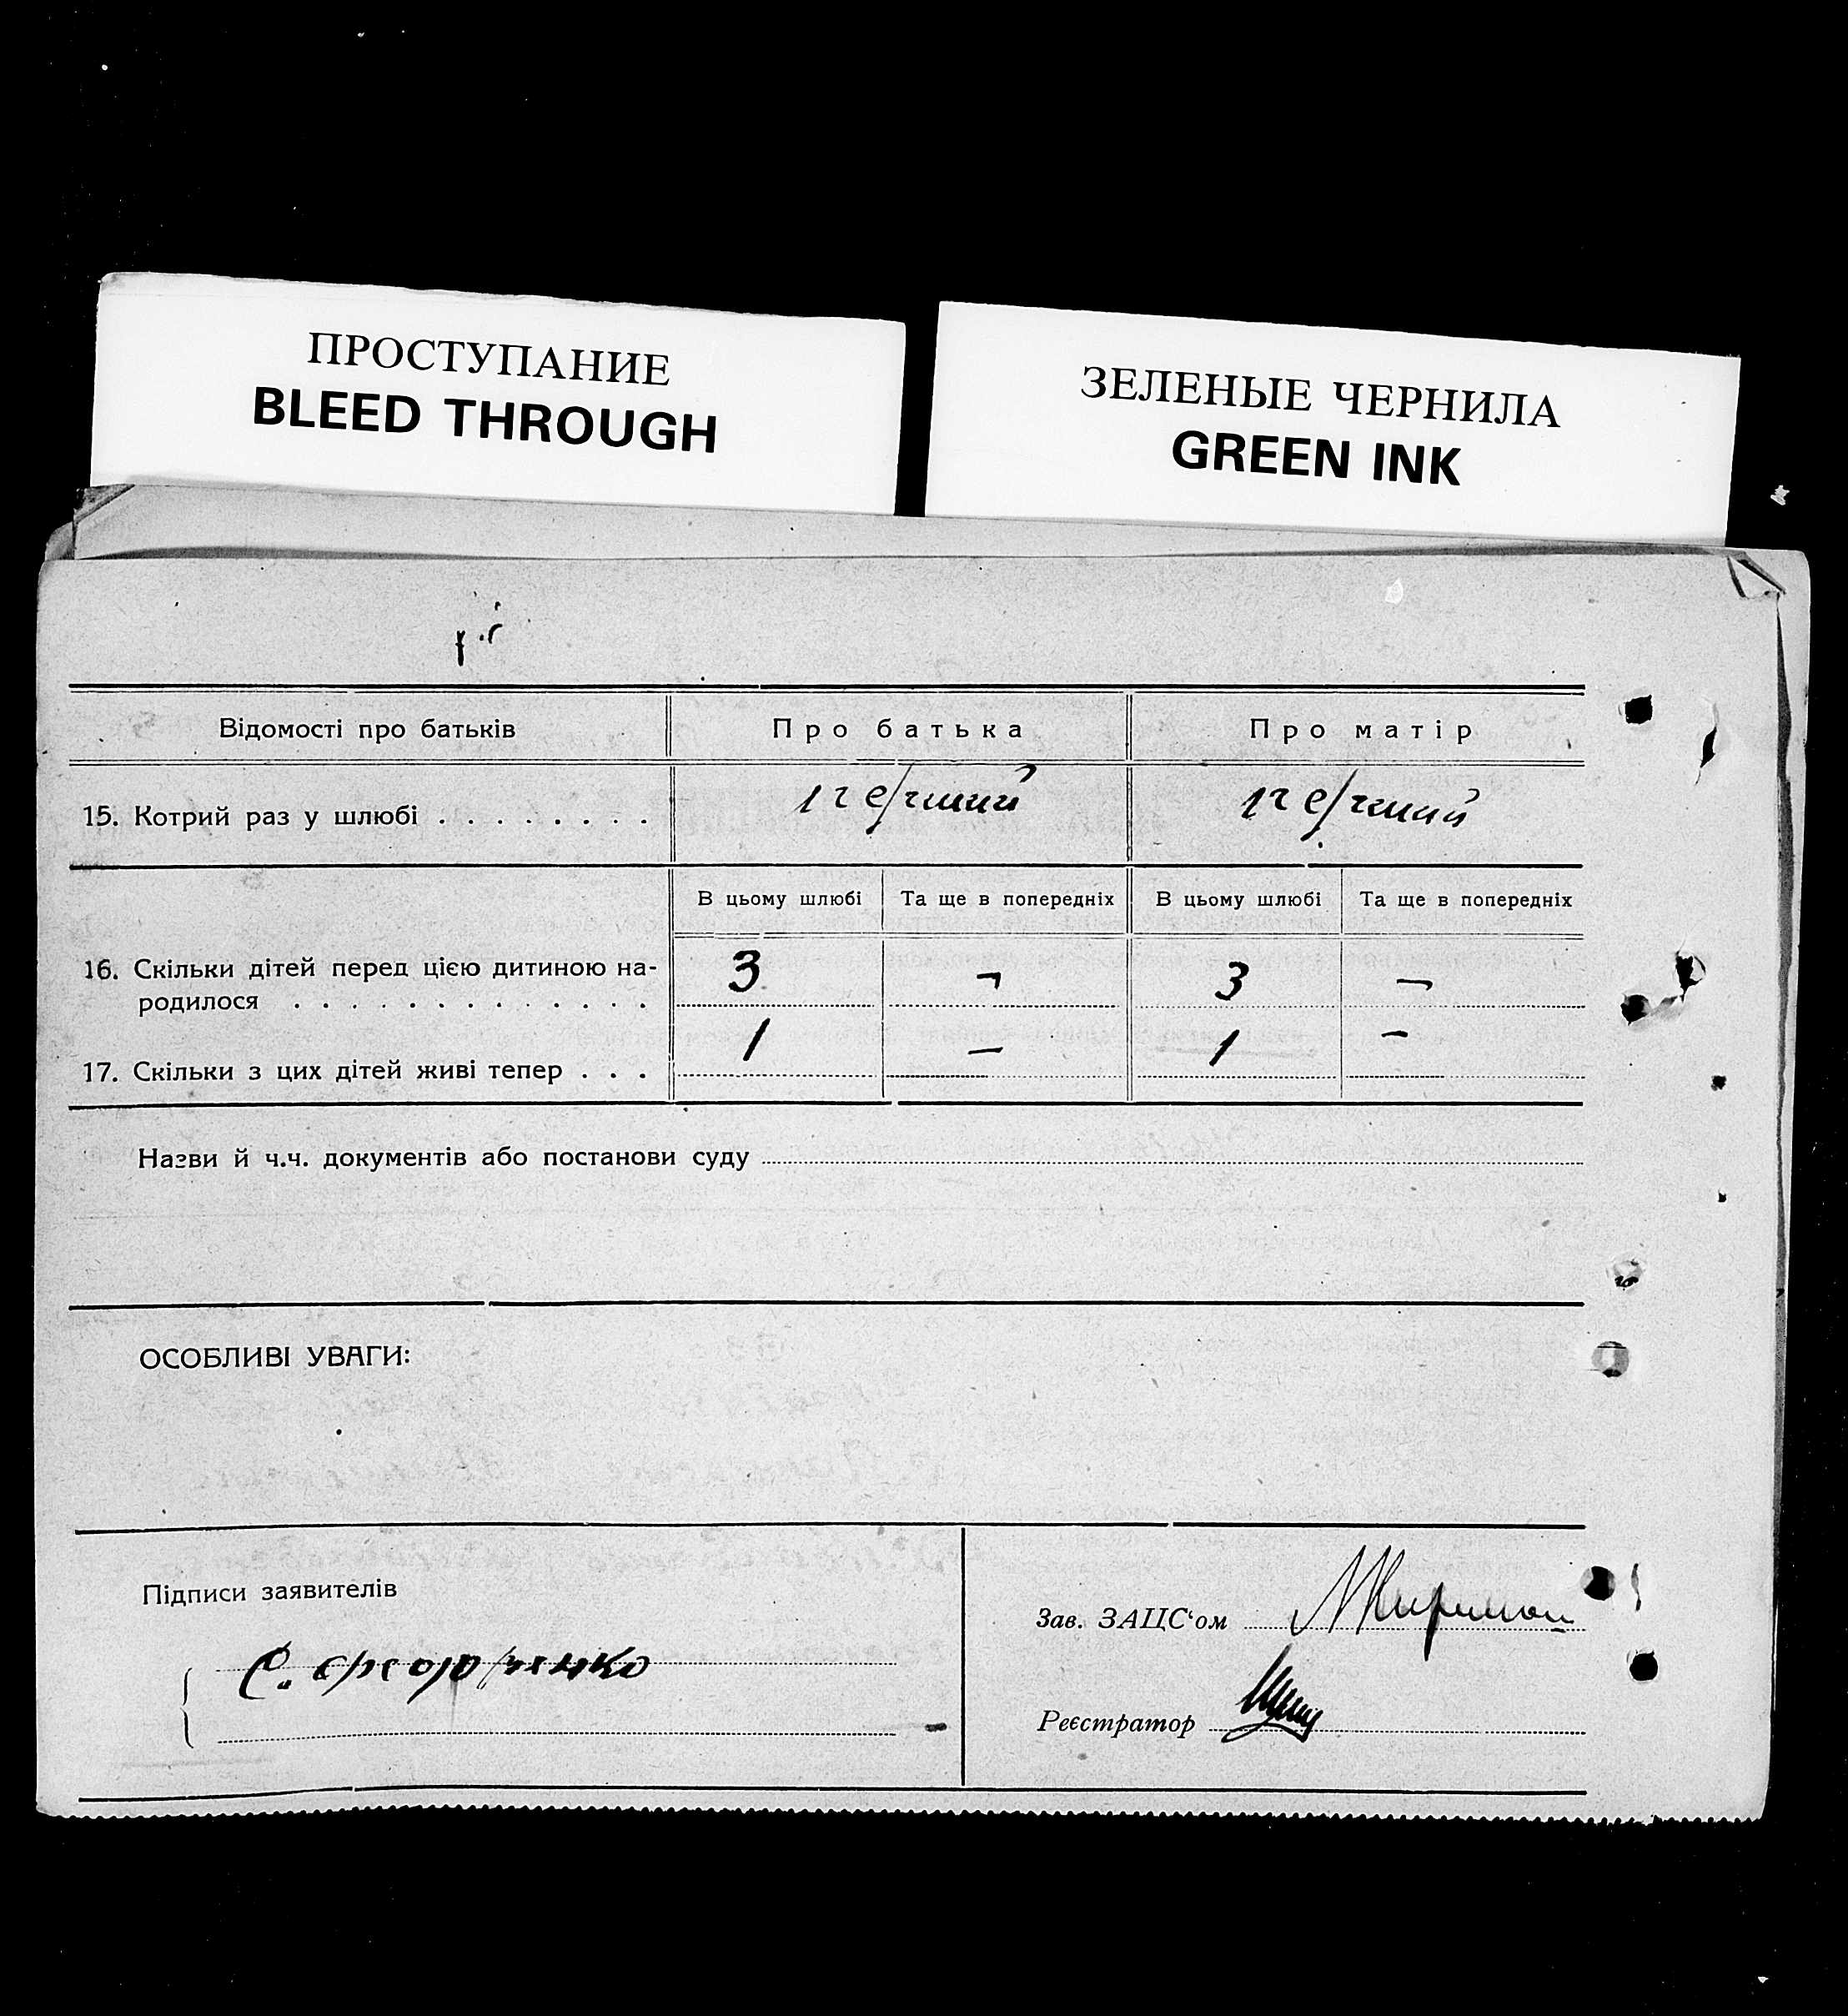 ПРОСТУПАНИЕ
BLEED THROUGH
ЗЕЛЕНЫЕ ЧЕРНИЛА
GREEN INK
Відомості про батьків Про батька Про матір
15. Котрий раз у шлюбі . . . . . . . . перший перший
В цьому шлюбі Та ще в попередніх В цьому шлюбі Та ще в попередніх
16. Скільки дітей перед цією дитиною на-
родилося . . . . . . . . . . . . . 3 – 3 –
17. Скільки з цих дітей живі тепер . . . 1 – 1 –
Назви й ч.ч. документів або постанови суду
ОСОБЛИВІ УВАГИ:
Підписи заявителів
Зав. ЗАЦС‘ом
Реєстратор